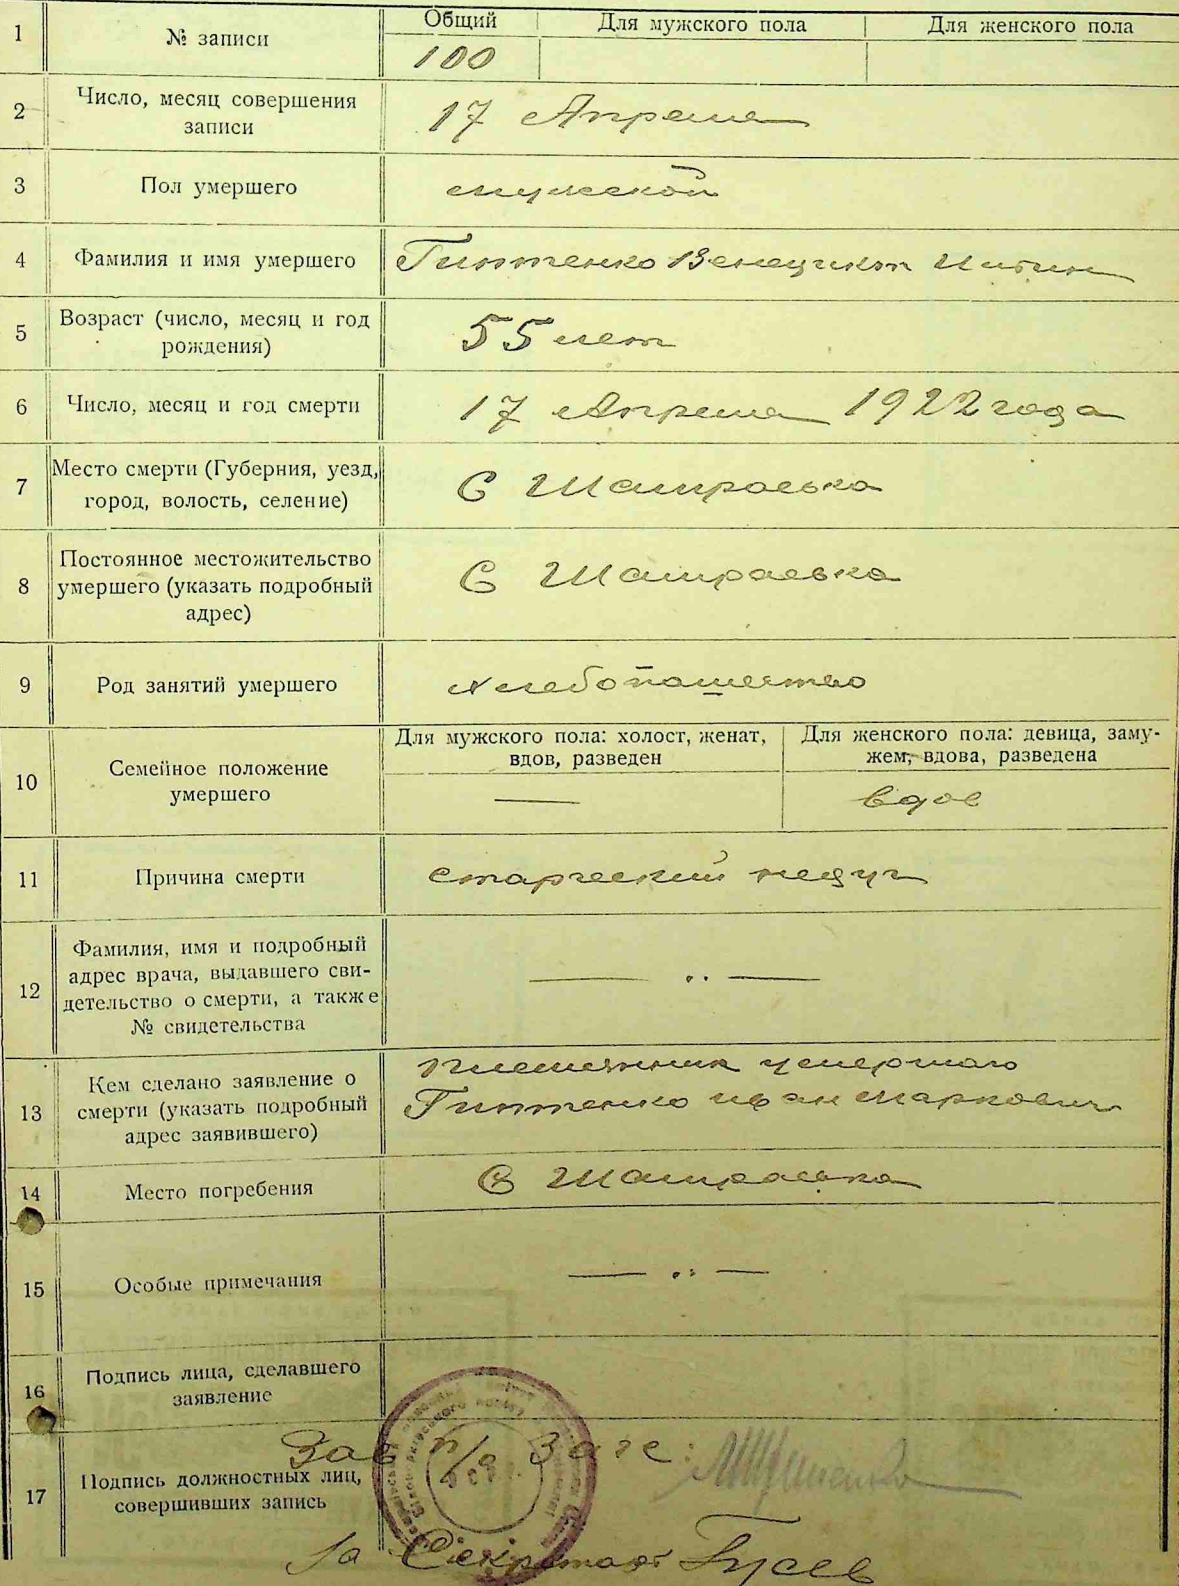 1 № записи Общий Для мужского пола Для женского пола
100
2 Число, месяц совершения записи 17 Апреля
3 Пол умершего мужской
4 Фамилия и имя умершего Гиптенко Венедикт
5 Возраст (число, месяц и год рождения) 55 лет
6 Число, месяц и год смерти 17 Апреля 1922 года
7 Место смерти (Губерния, уезд, город, волость, селение) С Шамраевка
8 Постоянное местожительство умершего (указать подробный адрес) С Шамраевка
9 Род занятий умершего хлебопашество
10 Семейное положение умершего Для мужского пола: холост, женат, вдов, разведен Для женского пола: девица, замужем, вдова, разведена
— вдов
11 Причина смерти старческий недуг
12 Фамилия, имя и подробный адрес врача, выдавшего свидетельство о смерти, а также № свидетельства — .. —
13 Кем сделано заявление о смерти (указать подробный адрес заявившего) Племянник умершего
Гиптенко Иван Маркович
14 Место погребения С Шамраевка
15 Особые примечания — .. —
16 Подпись лица, сделавшего заявление
17 Подпись должностных лиц, совершивших запись
Зав п/о Загс:
За Секретаря Гусев